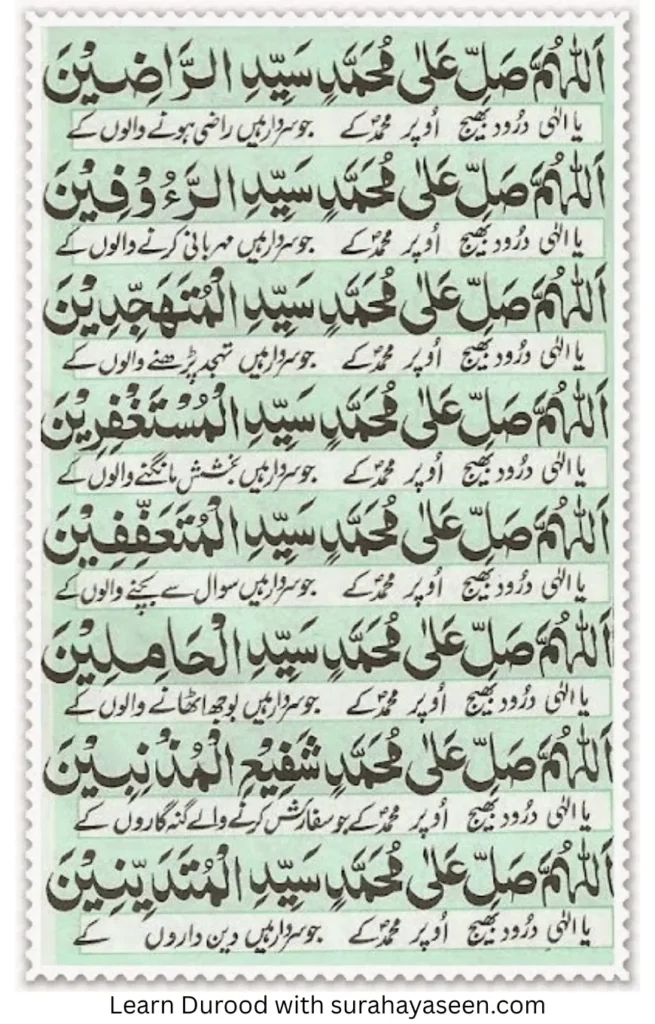 اَللّٰهُمَّ صَلِّ عَلٰى مُحَمَّدٍ سَيِّدِ الرَّاضِيْنَ
یا الٰہی درُود بھیج اُوپر محمدؐ کے جو سردار ہیں راضی ہونے والوں کے
اَللّٰهُمَّ صَلِّ عَلٰى مُحَمَّدٍ سَيِّدِ الرَّءُوْفِيْنَ
یا الٰہی درُود بھیج اُوپر محمدؐ کے جو سردار ہیں مہربانی کرنے والوں کے
اَللّٰهُمَّ صَلِّ عَلٰى مُحَمَّدٍ سَيِّدِ الْمُتَهَجِّدِيْنَ
یا الٰہی درُود بھیج اُوپر محمدؐ کے جو سردار ہیں تہجد پڑھنے والوں کے
اَللّٰهُمَّ صَلِّ عَلٰى مُحَمَّدٍ سَيِّدِ الْمُسْتَغْفِرِيْنَ
یا الٰہی درُود بھیج اُوپر محمدؐ کے جو سردار ہیں بخشش مانگنے والوں کے
اَللّٰهُمَّ صَلِّ عَلٰى مُحَمَّدٍ سَيِّدِ الْمُتَعَفِّفِيْنَ
یا الٰہی درُود بھیج اُوپر محمدؐ کے جو سردار ہیں سوال سے بچنے والوں کے
اَللّٰهُمَّ صَلِّ عَلٰى مُحَمَّدٍ سَيِّدِ الْحَامِلِيْنَ
یا الٰہی درُود بھیج اُوپر محمدؐ کے جو سردار ہیں بوجھ اٹھانے والوں کے
اَللّٰهُمَّ صَلِّ عَلٰى مُحَمَّدٍ شَفِيْعِ الْمُذْنِبِيْنَ
یا الٰہی درُود بھیج اُوپر محمدؐ کے جو سفارش کرنے والے گنہ گاروں کے
اَللّٰهُمَّ صَلِّ عَلٰى مُحَمَّدٍ سَيِّدِ الْمُتَدَيِّنِيْنَ
یا الٰہی درُود بھیج اُوپر محمدؐ کے جو سردار ہیں دین داروں کے
Learn Durood with surahayaseen.com